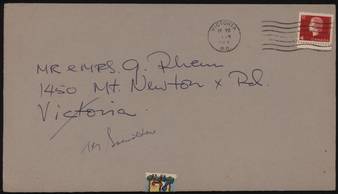 VICTORIA
MR & MRS. G. Rhem
1450 Mt. Newton x Rd.
Victoria